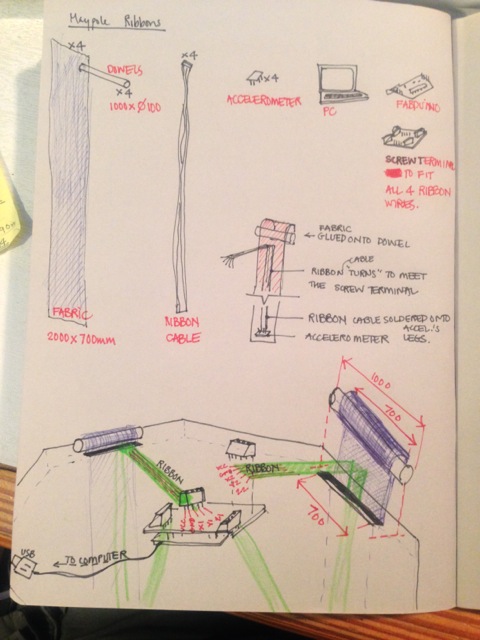 Maypole Ribbons
x4
DOWELS
x4
1000 x Ø100
x4
x4
ACCELEROMETER
PC
FABDUINO
SCREW TERMINAL
TO FIT
ALL 4 RIBBON
WIRES.
FABRIC
GLUED ONTO DOWEL
CABLE
RIBBON "TURNS" TO MEET
THE SCREW TERMINAL
RIBBON CABLE SOLDERED ONTO
ACCEL.'S
ACCELEROMETER LEGS.
FABRIC
2000 x 700mm
RIBBON
CABLE
1000
700
RIBBON
RIBBON
700
USB
TO COMPUTER